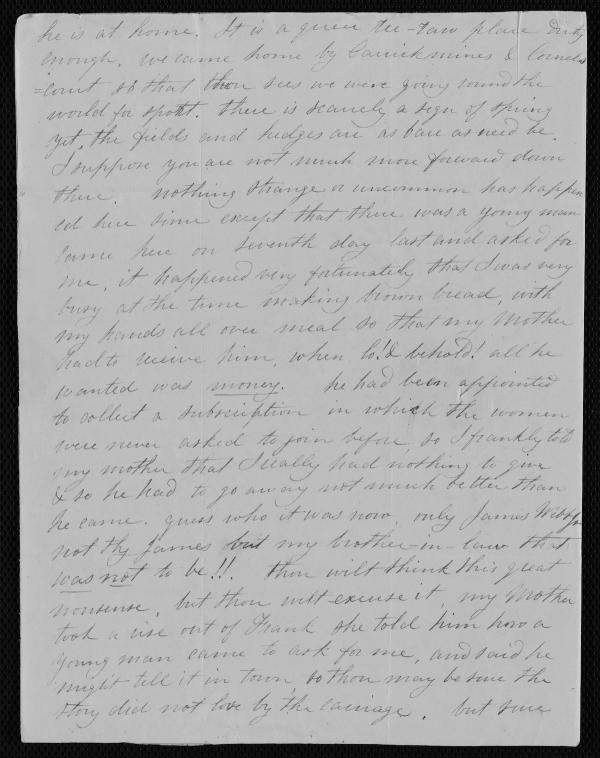 he is at home. It is a queer tee-taw place dirty
enough, we came home by Carrickmines & Cornels
=court so that thou sees we were going round the
world for sport. there is scarcely a sign of spring
yet, the fields and hedges are as bare as need be.
I suppose you are not much more forward down
there. nothing strange or uncommon has happen
ed here since except that there was a young man
came here on seventh day last and asked for
me, it happened very fortunately that I was very
busy at the time making brown bread, with
my hands all over meal so that my Mother
had to receive him, when lo! & behold! all he
wanted was money. he had been appointed
to collect a subscription in which the women
were never asked to join before, so I frankly told
my mother that I really had nothing to give
& so he had to go away not much better than
he came. guess who it was now, only James
not thy James but my brother-in-law that
was not to be!!. thou wilt think this great
nonsense, but thou wilt excuse it, my Mother
took a rise out of Frank she told him how a
young man came to ask for me, and said he
might tell it in town so thou may be sure the
story did not lose by the carriage. but sure